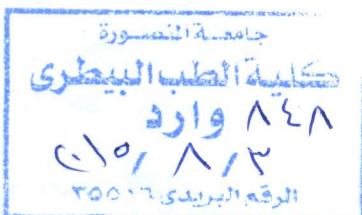 جامعة المنصورة
كلية الطب البيطرى
وارد ٨٤٨
٢٠١٥/ ٨/ ٣
الرقم البريدى ٣٥٥١٦